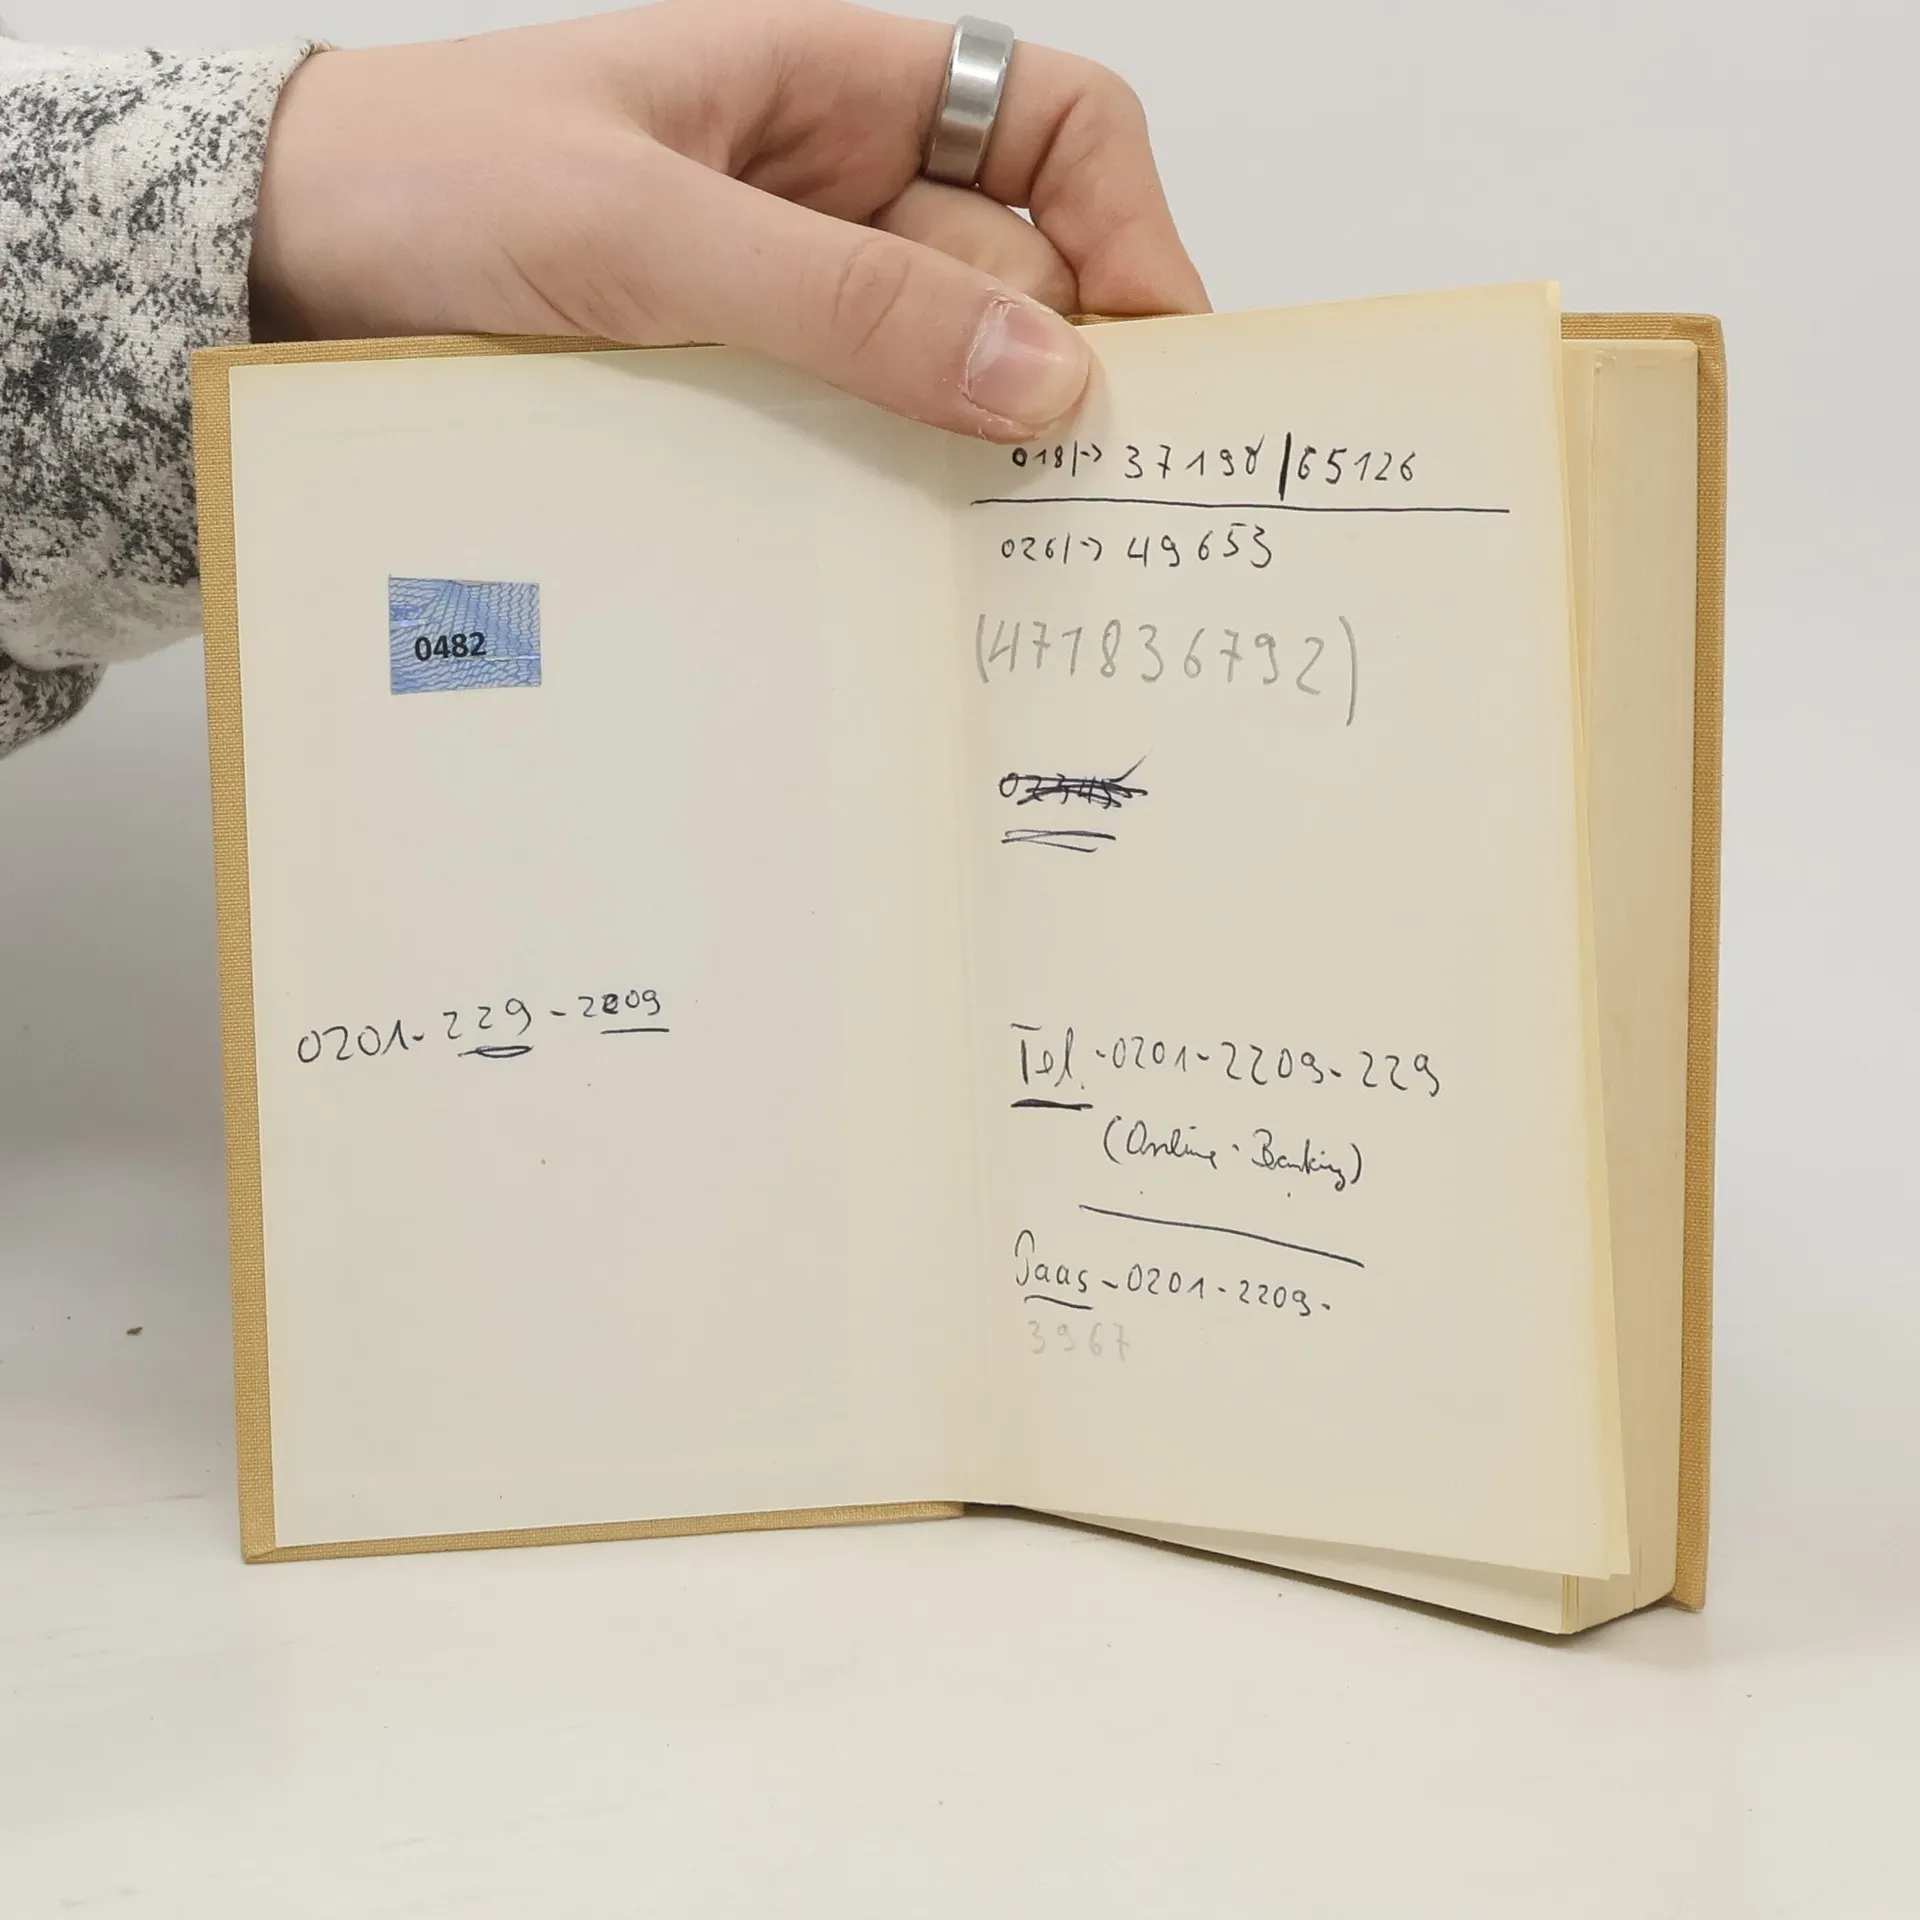 0482
0201-229-2209
018/-> 37198/65126
026/-> 49653
(471836792)
Tel.-0201-2209-229
(Online-Banking)
-0201-2209-
3967